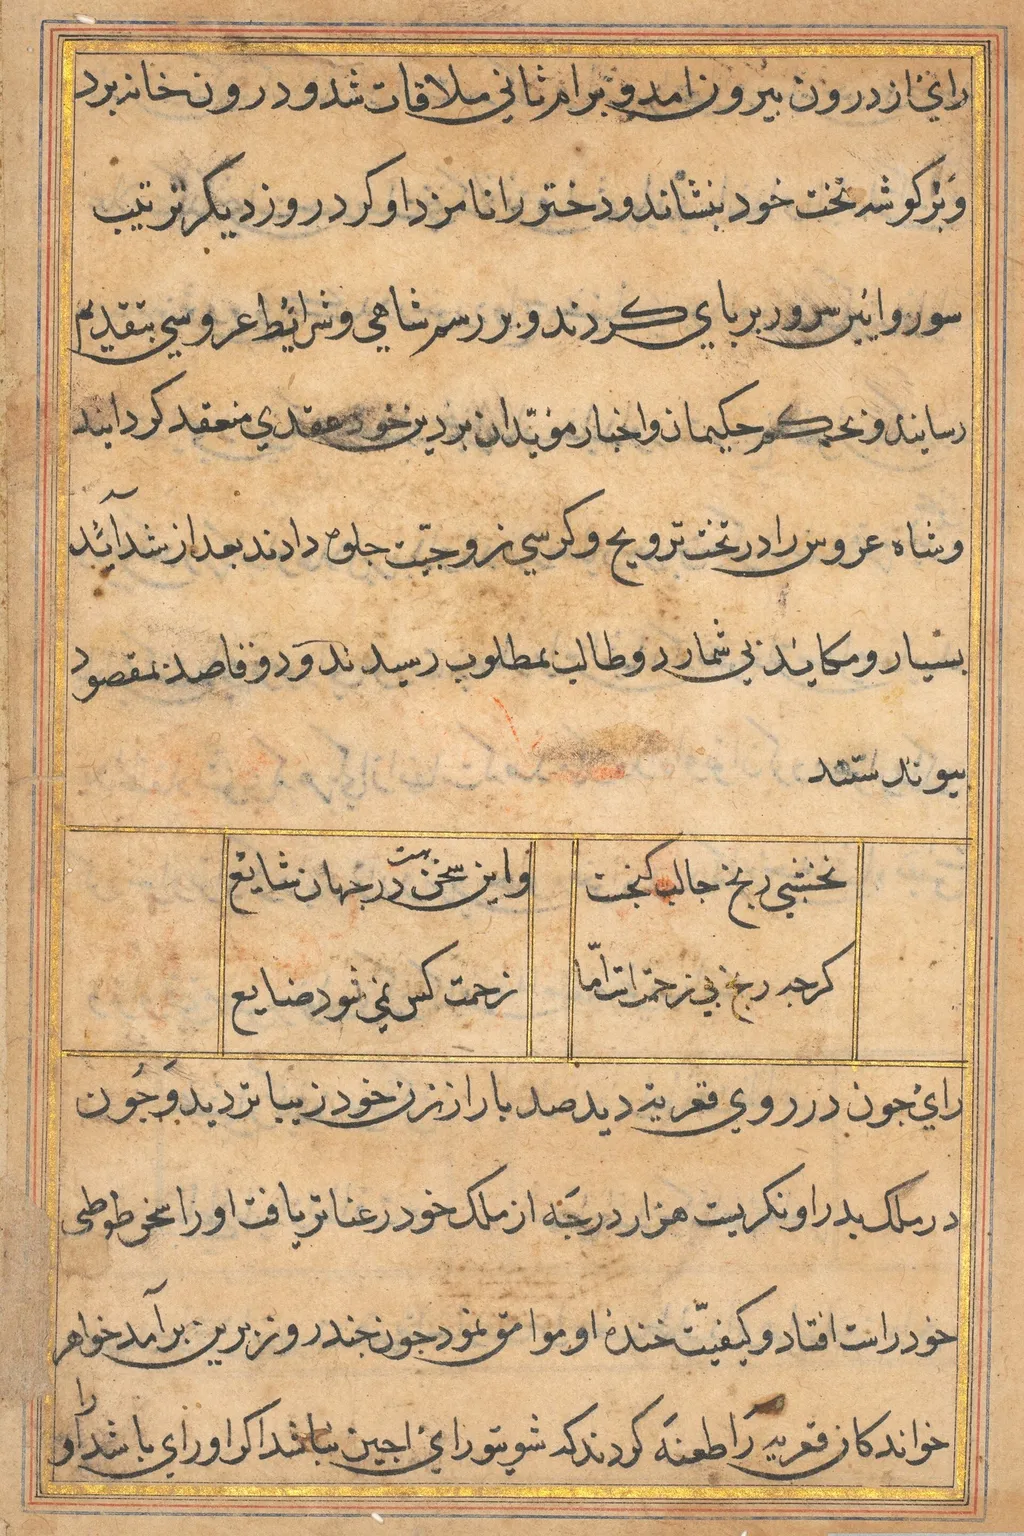 رای از درون بیرون امد و برام ثانی ملاقات شد و درون خانه برد
و بر کوشه تخت خود بنشاند و دختر را نامزد او کرد روز دیکر ترتیب
سور و ایین سرور بر بای کردند و بر رسم شاهی و شرائط عروسی بتقدیم
رسانیدند و بحکم حکیمان و اخبار مؤبّدان بر دین خود عقدی منعقد کردانیند
و شاه عروس را در تخت ترویج و کرسی زوجیّت جلوه دادند بعد از شدآئد
بسیار و مکایند بی شمار دو طالب بمطلوب رسیدند و دو قاصد بمقصود
بیوندستند
نخشبی رنج جالب کنجت
واین سخن هست در جهان شایع
کرجه رنج بی زحمت است امّا
زحمت کس نمی شود ضایع
رای جون در روی قمریه دید صد بار از زن خود زیباتر دید وَ جُون
در ملک بدر او نکریست هزار درجَه از ملک خود رعناتر یافت او را سخن طوطی
خود راست افتاد و کیفیّت خنده او موافق نمود جون جند روز برین برآمد خواهر
خواندکان قمریه رَا طعنَه کردند که شوی تو رای اجین نباشد اکر او رای باشد او را